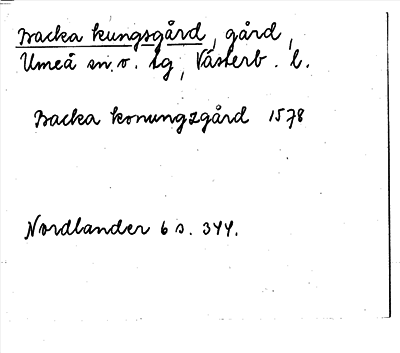 Backa kungsgård, gård,
Umeå sn. o. tg, Västerb. l.
Backa konungzgård 1578
Nordlander 6 s. 344.